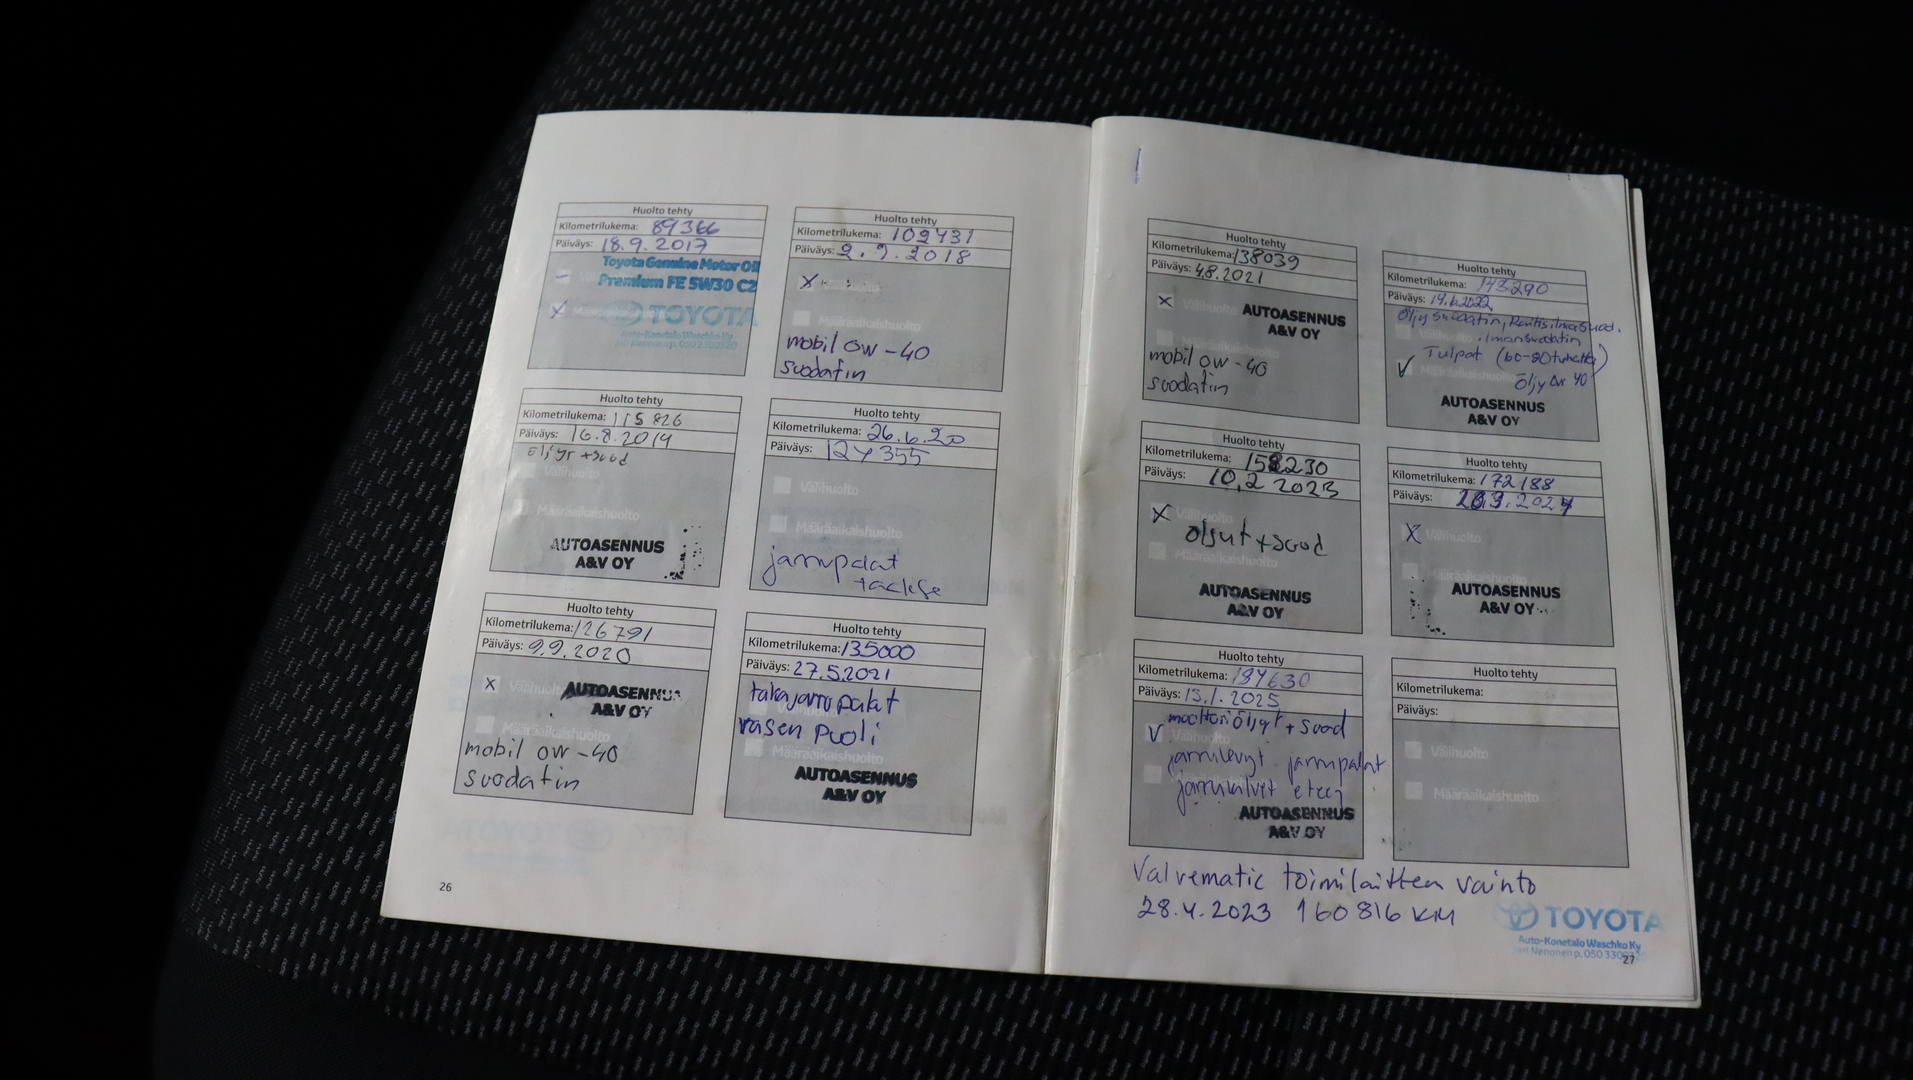 Huolto tehty
Kilometrilukema: 89366
Päiväys: 18.9.2017
Toyota Genuine Motor Oil
Premium FE 5W30 C2
Määräaikaishuolto
TOYOTA
Auto-Konetalo Waschko Ky
Huolto tehty
Kilometrilukema: 102431
Päiväys: 2.9.2018
Määräaikaishuolto
mobil 0w-40
suodatin
Huolto tehty
Kilometrilukema: 115826
Päiväys: 16.8.2019
öljyt+suod
Välihuolto
Määräaikaishuolto
AUTOASENNUS
A&V OY
Huolto tehty
Kilometrilukema: 26.6.20
Päiväys: 124355
Välihuolto
Määräaikaishuolto
jarrupalat
taakse
Huolto tehty
Kilometrilukema: 126791
Päiväys: 9.9.2020
Välihuolto
AUTOASENNUS
A&V OY
Määräaikaishuolto
mobil 0w-40
suodatin
Huolto tehty
Kilometrilukema: 135000
Päiväys: 27.5.2021
takajarrupalat
vasen puoli
Määräaikaishuolto
AUTOASENNUS
A&V OY
26
Huolto tehty
Kilometrilukema: 138039
Päiväys: 4.8.2021
Välihuolto
AUTOASENNUS
A&V OY
mobil 0w-40
suodatin
Huolto tehty
Kilometrilukema: 143290
Päiväys: 14.1.2022
Öljysuodatin, Raitisilmasuod.
ilmansuodatin
Tulpat (60-90tuhatta)
Määräaikaishuolto
Öljy 0w 40
AUTOASENNUS
A&V OY
Huolto tehty
Kilometrilukema: 158230
Päiväys: 10.2 2023
Välihuolto
öljyt+suod
Määräaikaishuolto
AUTOASENNUS
A&V OY
Huolto tehty
Kilometrilukema: 172188
Päiväys: 2024
Välihuolto
Määräaikaishuolto
AUTOASENNUS
A&V OY
Huolto tehty
Kilometrilukema: 184630
Päiväys: 13.1.2025
moottoriöljyt + suod
Välihuolto
jarrulevyt jarrupalat
jarrukilvet eteen
AUTOASENNUS
A&V OY
Huolto tehty
Kilometrilukema:
Päiväys:
Välihuolto
Määräaikaishuolto
Valvematic toimilaitteen vaihto
28.4.2023 160816 KM
TOYOTA
Auto-Konetalo Waschko Ky
Jari Nenonen p. 050 3300
27